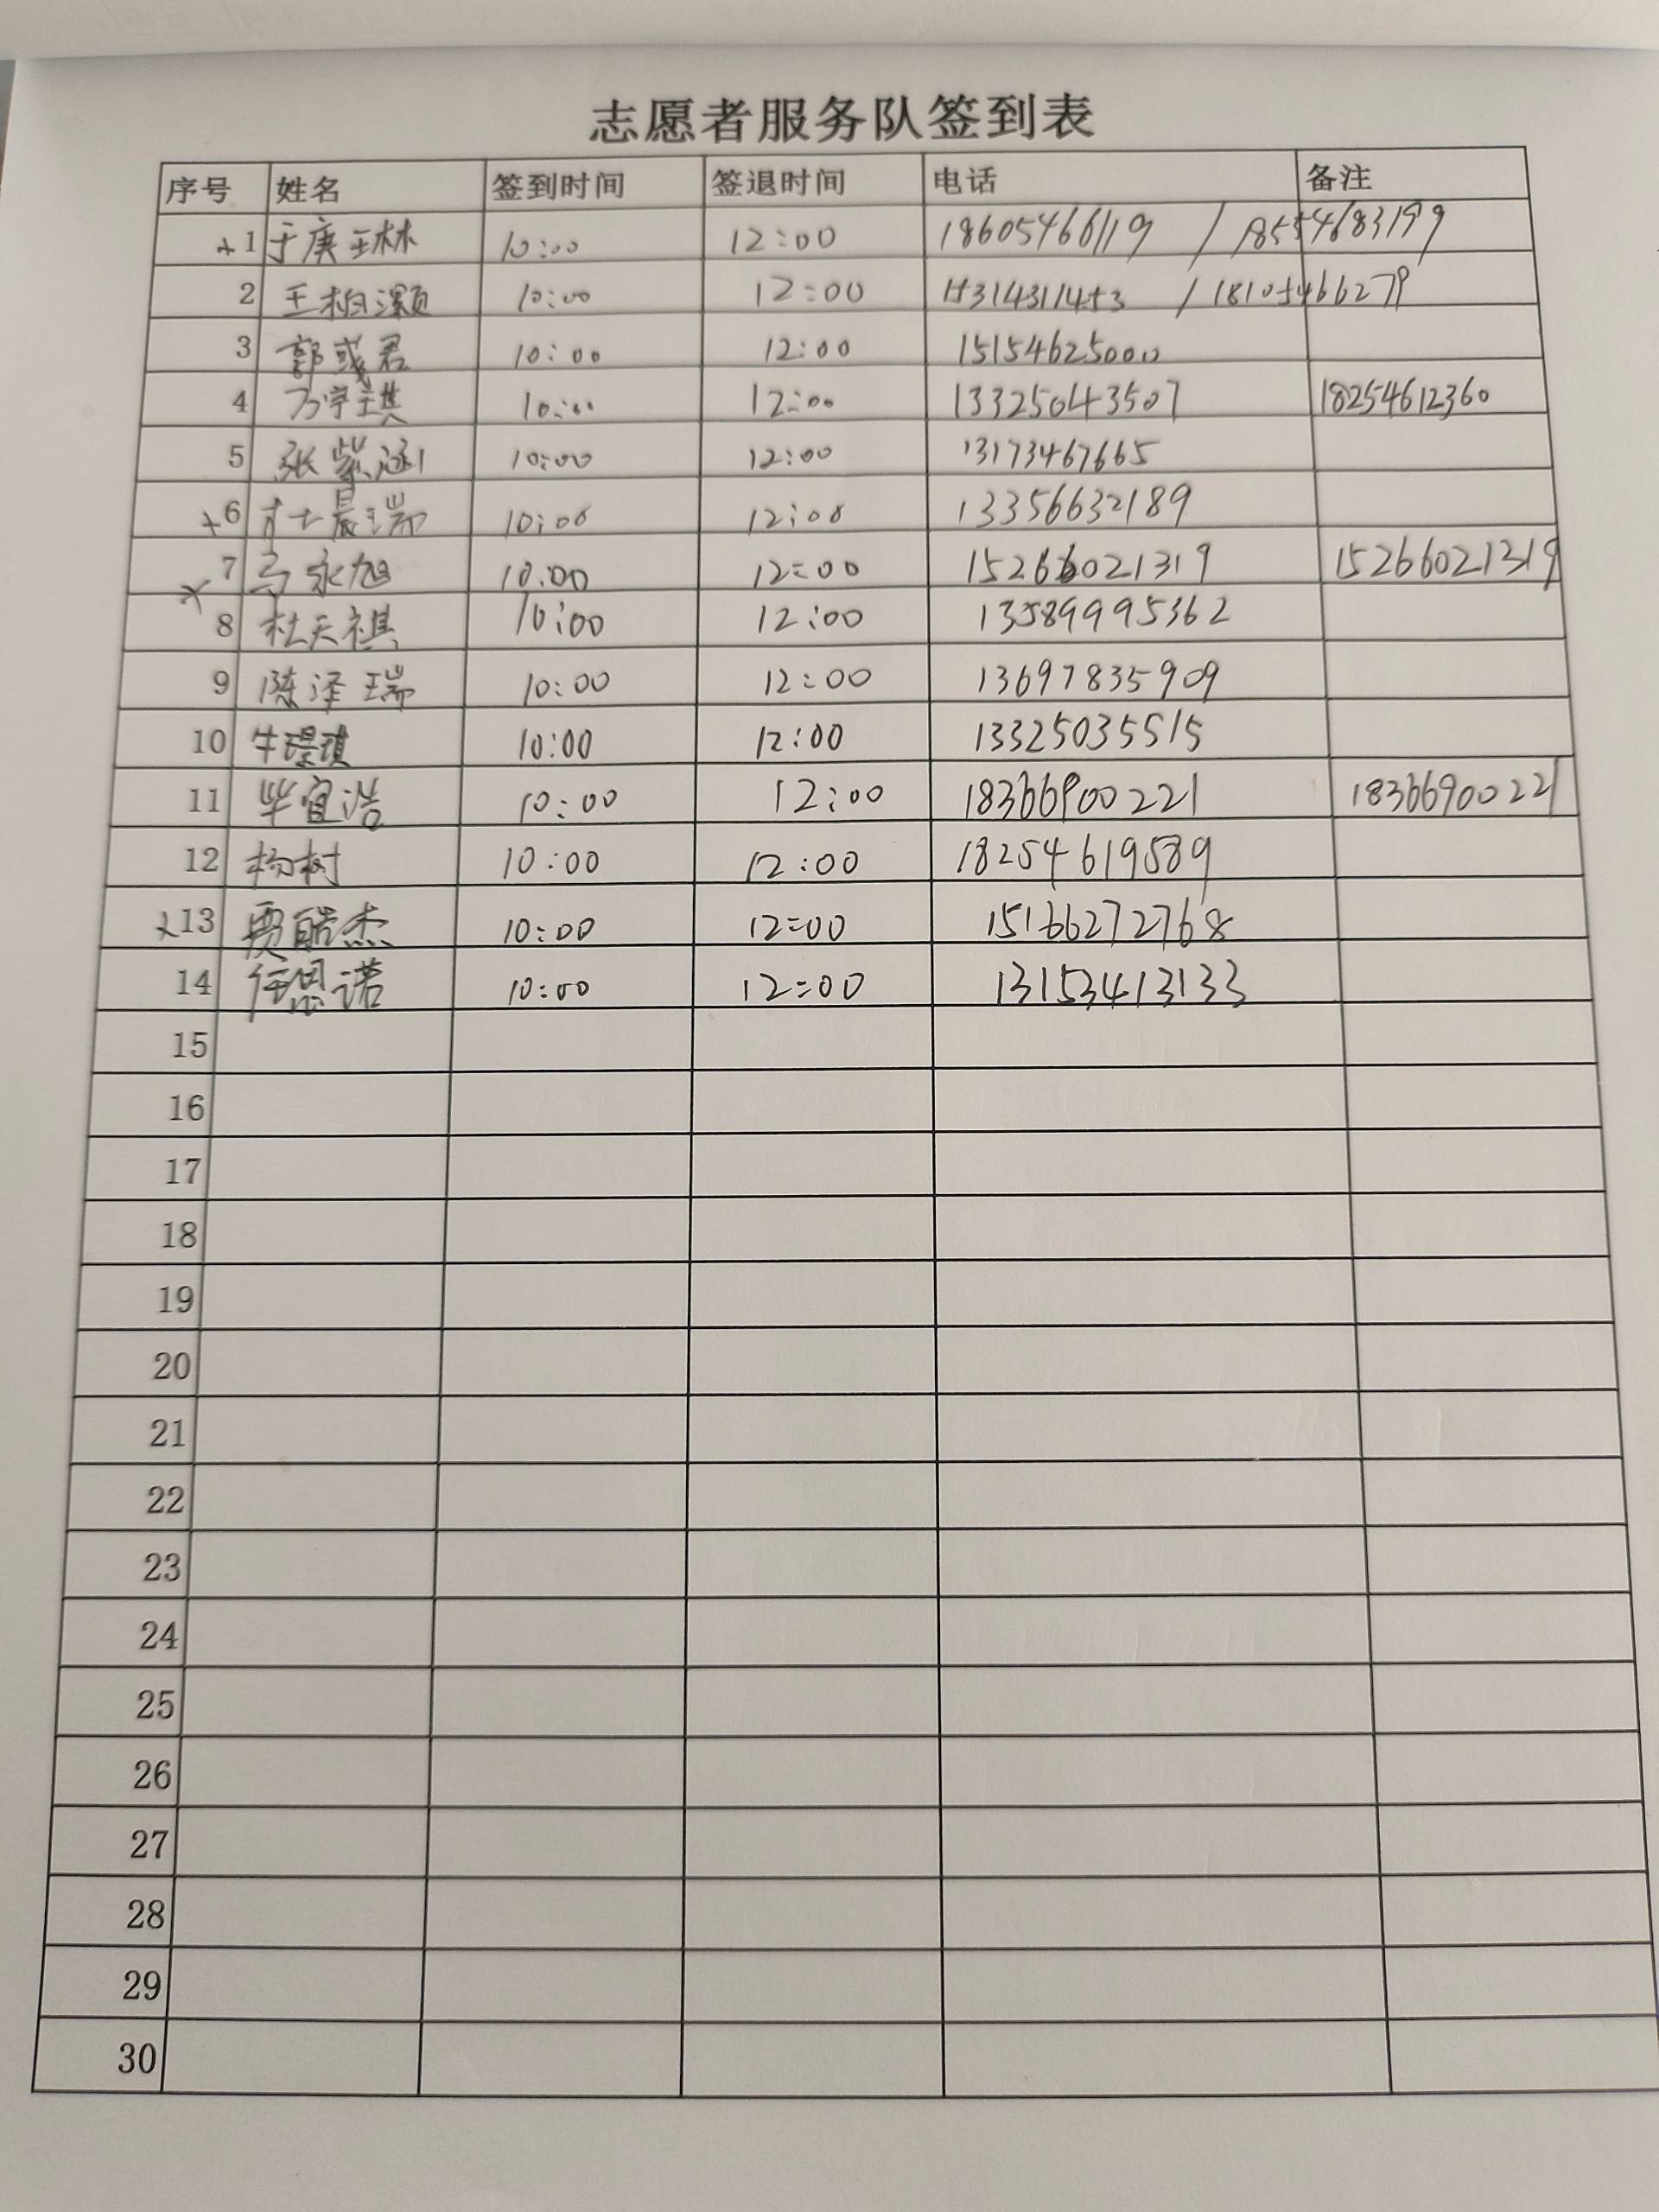 志愿者服务队签到表
序号 姓名 签到时间 签退时间 电话 备注
1 于庚王林 10:00 12:00 18605466119 / 18554683199
2 王柏灏 10:00 12:00 15314311453 / 18105466279
3 郭彧君 10:00 12:00 15154625000
4 万宇祺 10:00 12:00 13325043507 18254612360
5 张紫涵 10:00 12:00 13173467665
6 晨瑞 10:00 12:00 13356632189
7 马永旭 10:00 12:00 15266021319 15266021319
8 杜天祺 10:00 12:00 13589995362
9 陈泽瑞 10:00 12:00 13697835909
10 牛璟琪 10:00 12:00 13325035515
11 毕宜浩 10:00 12:00 18366900221 18366900221
12 杨树 10:00 12:00 18254619589
13 贾皓杰 10:00 12:00 15166272768
14 任思诺 10:00 12:00 13153413133
15
16
17
18
19
20
21
22
23
24
25
26
27
28
29
30